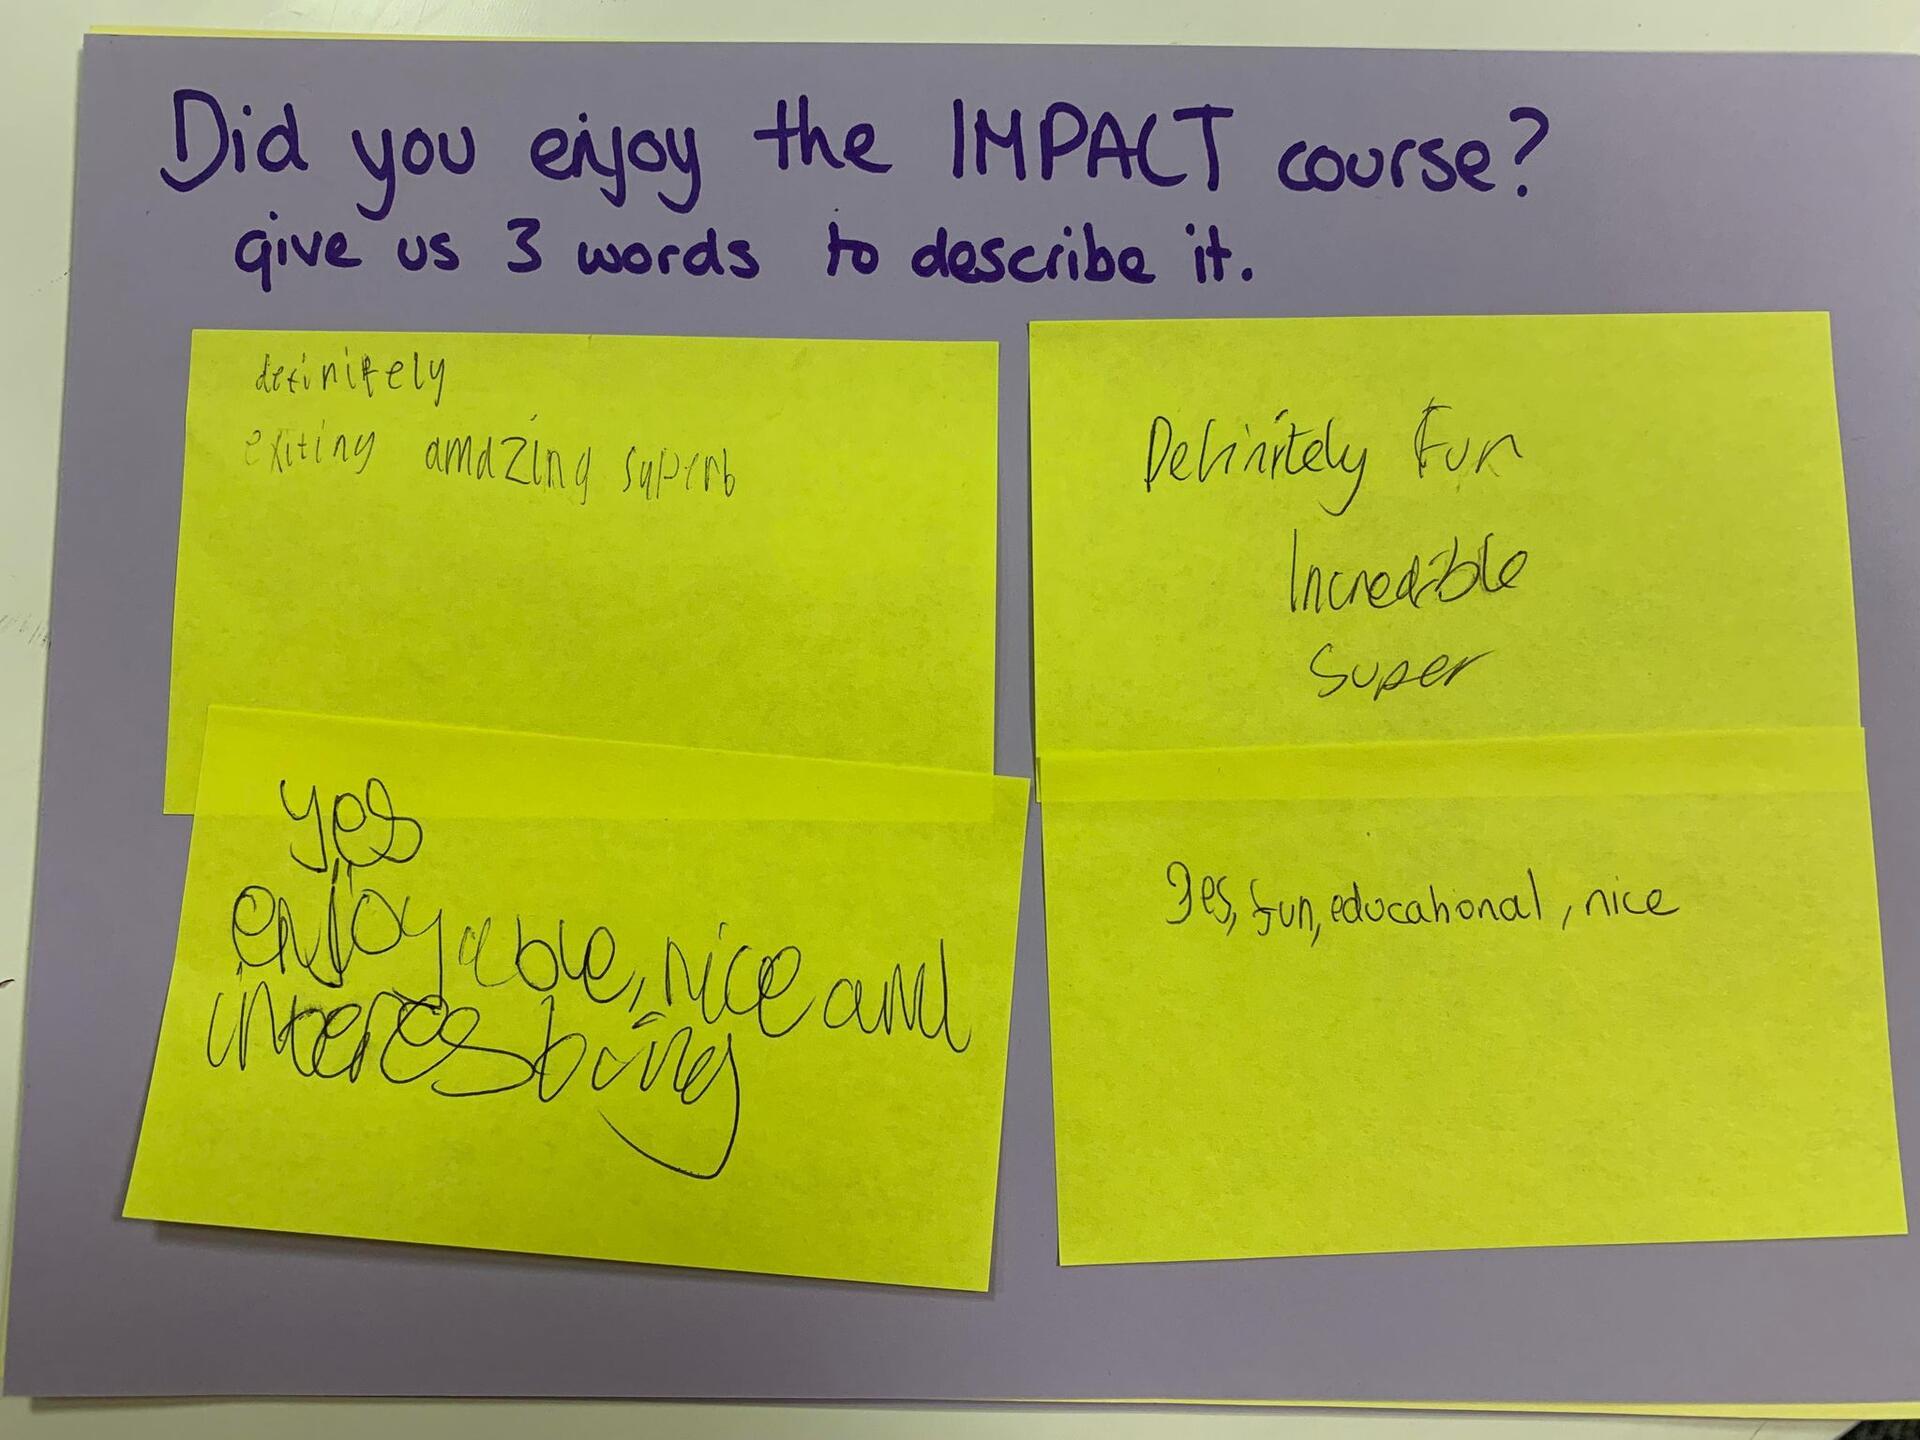 Did you enjoy the IMPACT course?
give us 3 words to describe it.
definitely
exiting amazing superb
Definitely Fun
Incredible
Super
yes
enjoyable, nice and
interesting
Yes, fun, educational, nice